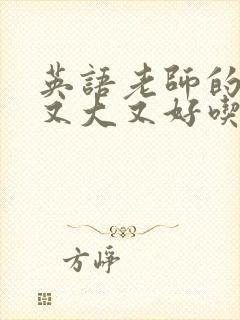 英語老師的
又大又好喫
方崢